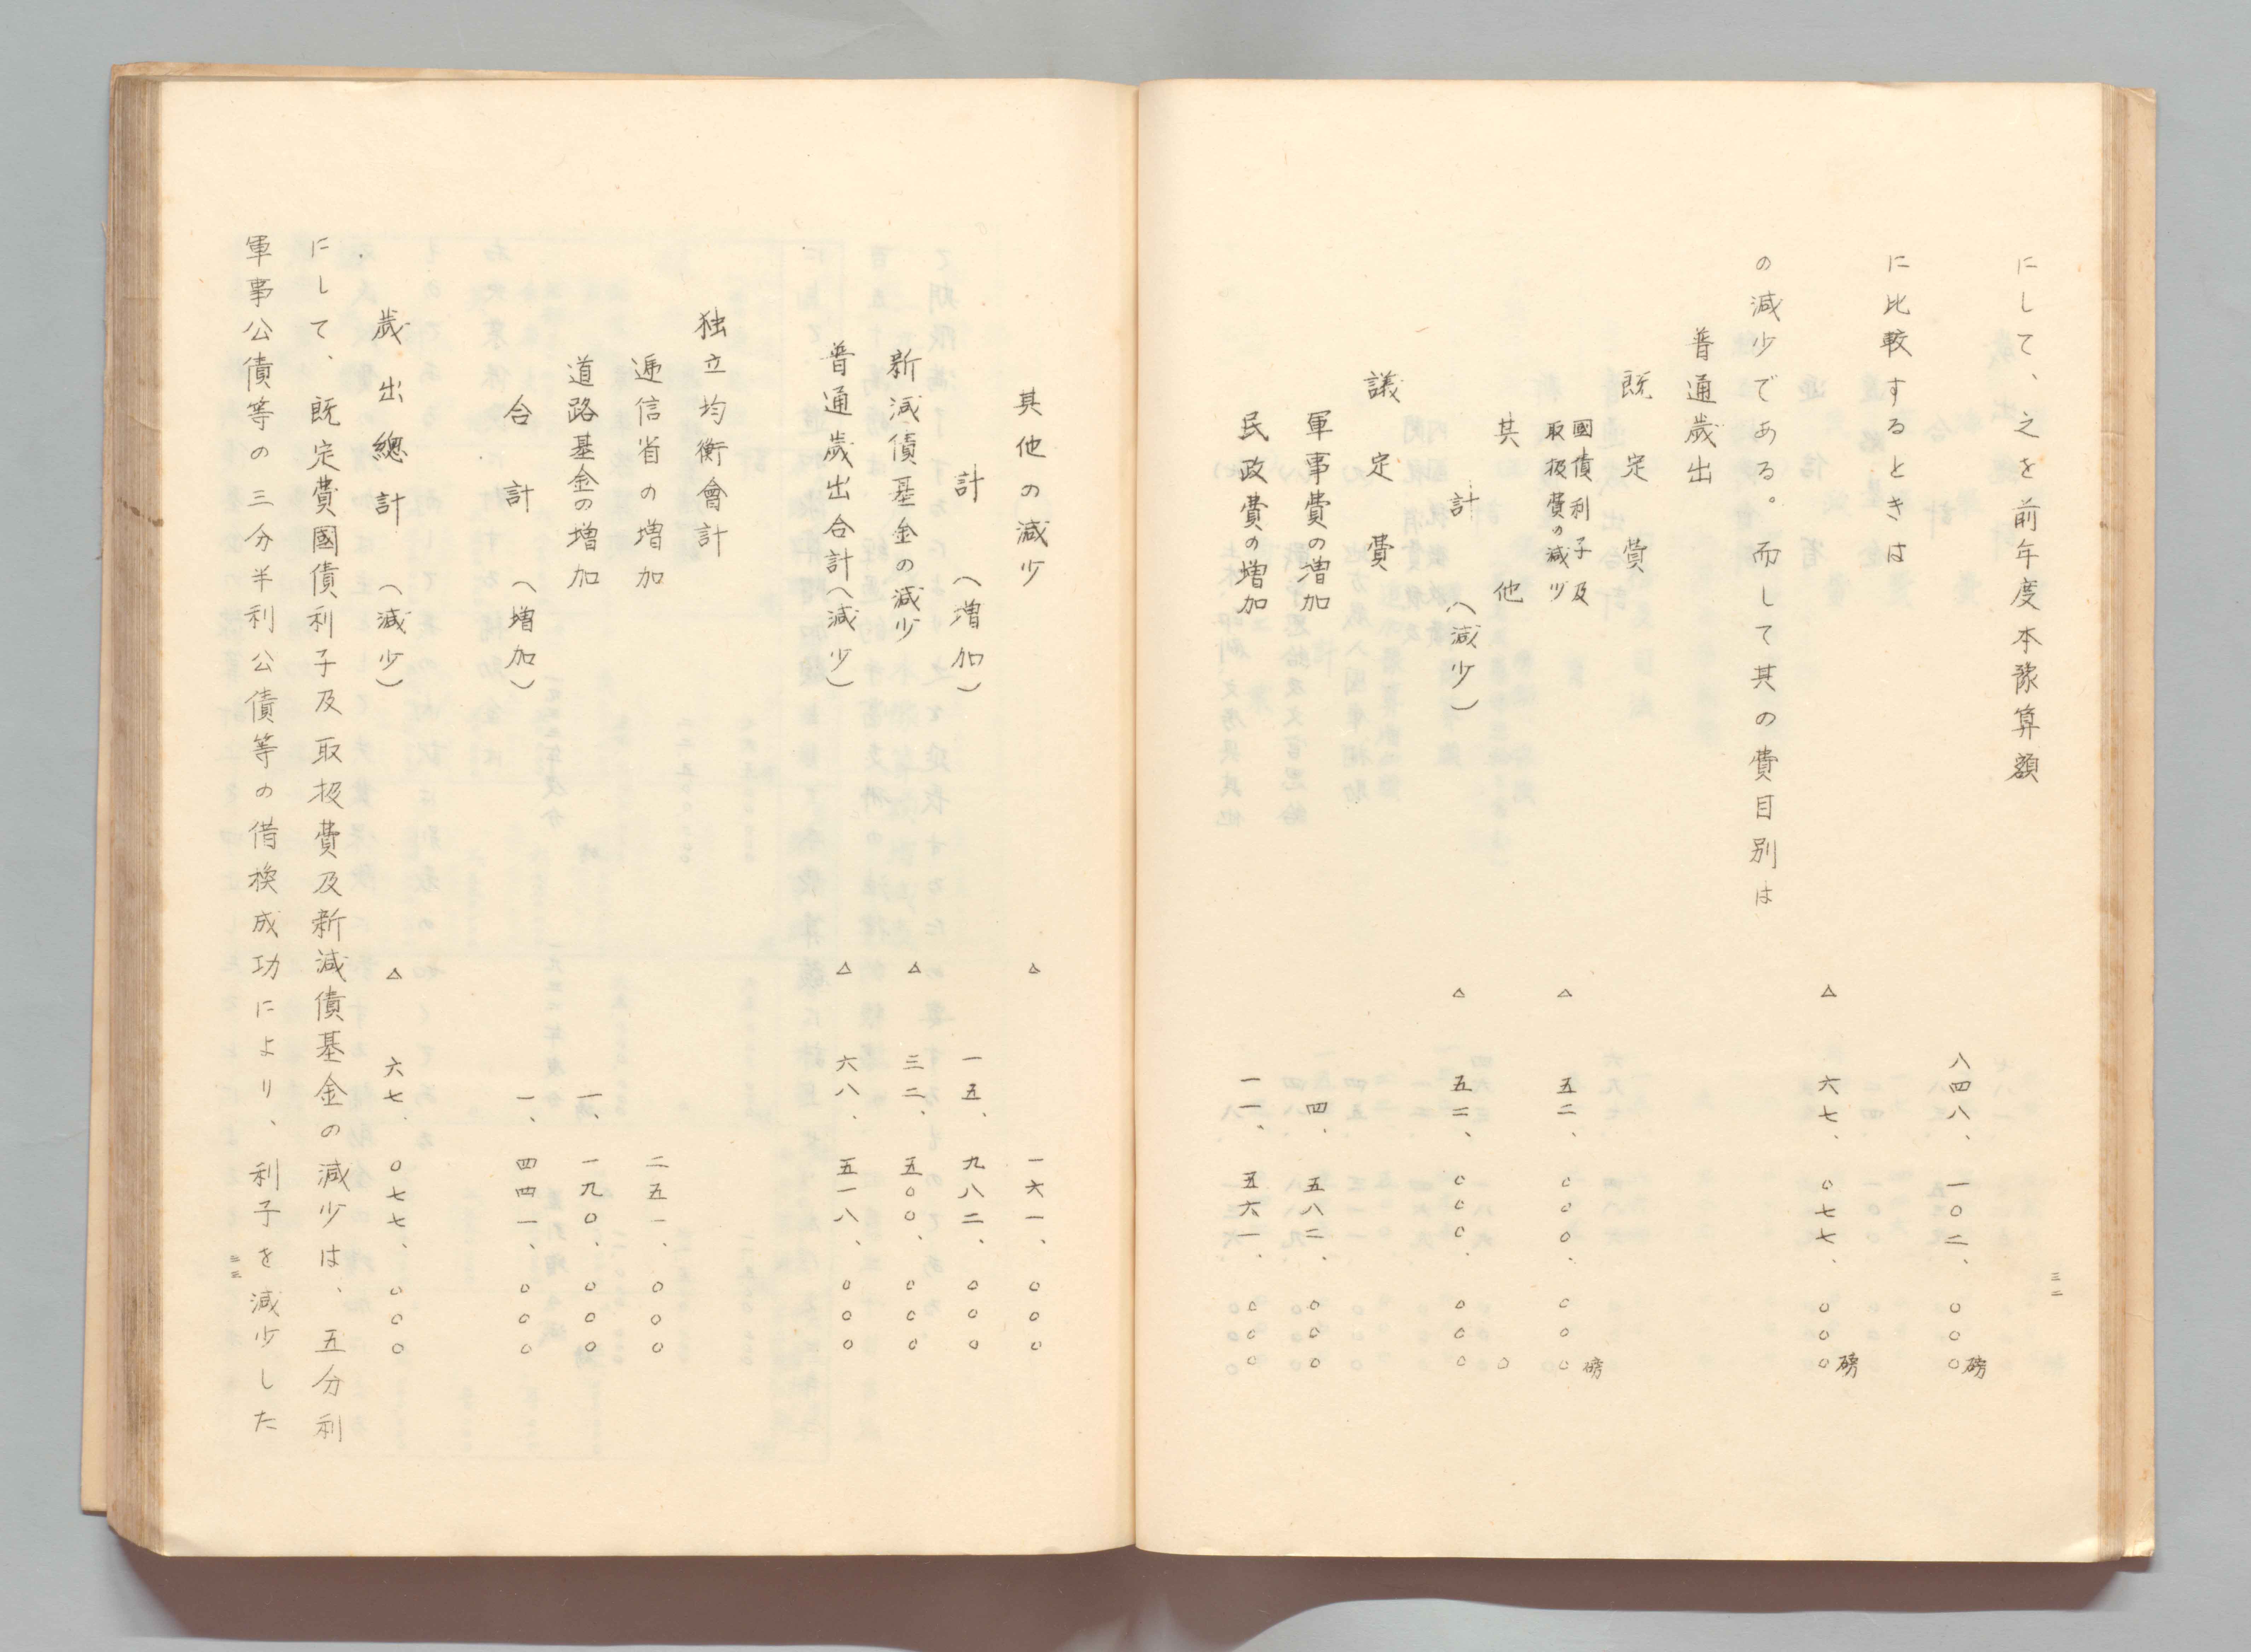 八四八、一〇二、〇〇〇磅
にして、之を前年度本豫算額
に比較するときは
△六七、〇七七、〇〇〇磅
の減少である。而して其の費目別は
普通歲出
既定費
國債利子及取扱費の減少 △五二、〇〇〇、〇〇〇磅
其他 〇
計(減少) △五二、〇〇〇、〇〇〇
議定費
軍事費の増加 四、五八二、〇〇〇
民政費の増加 一一、五六一、〇〇〇
三二
其他の減少 △一六一、〇〇〇
計(増加) 一五、九八二、〇〇〇
新減債基金の減少 △三二、五〇〇、〇〇〇
普通歲出合計(減少) △六八、五一八、〇〇〇
独立均衡會計
逓信省の増加 二五一、〇〇〇
道路基金の増加 一、一九〇、〇〇〇
合計(増加) 一、四四一、〇〇〇
歲出總計(減少) △六七、〇七七、〇〇〇
にして、既定費國債利子及取扱費及新減債基金の減少は、五分利
軍事公債等の三分半利公債等の借換成功により、利子を減少した
三三